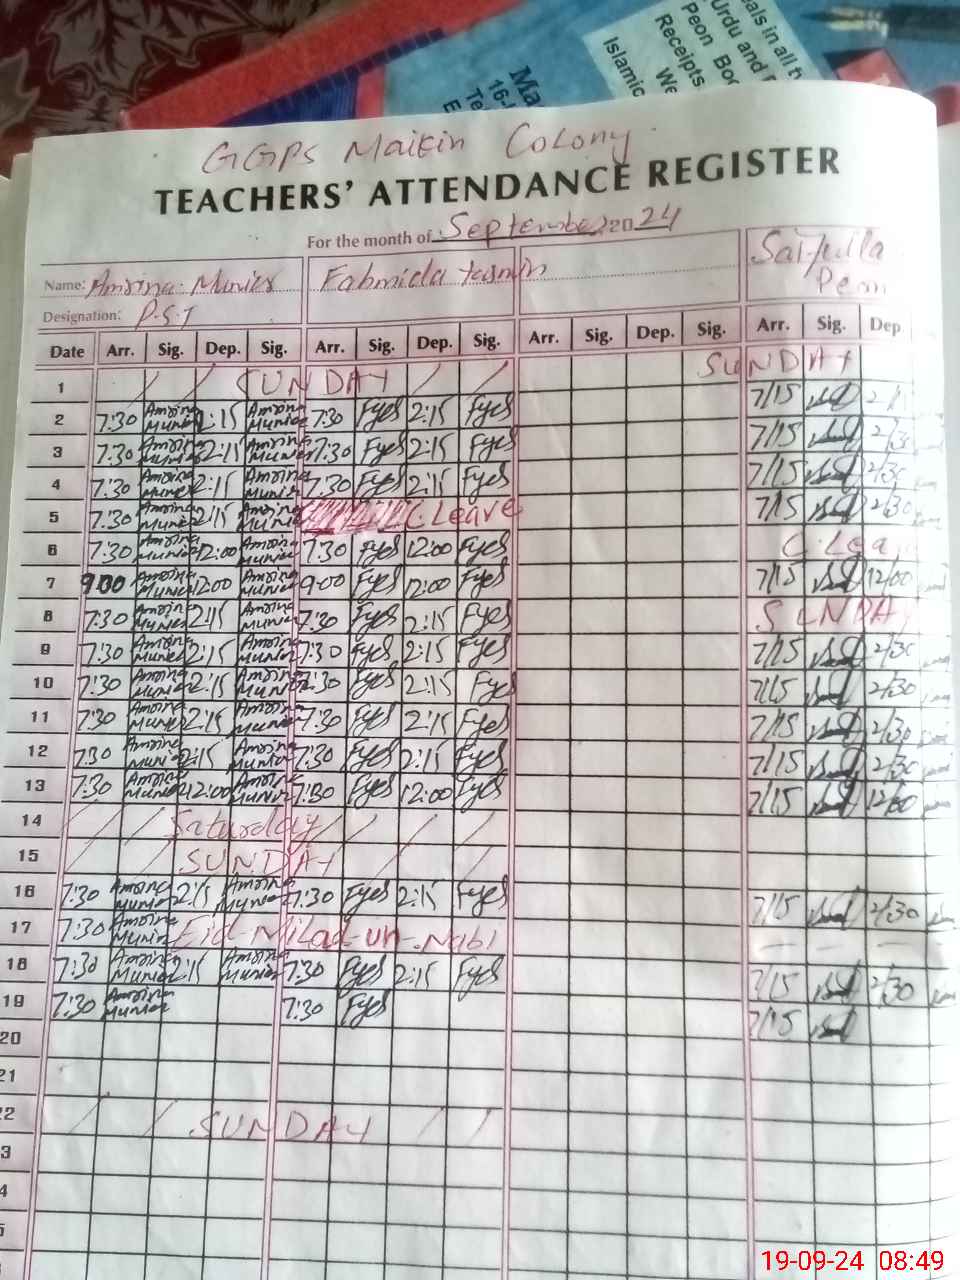 als in all t
Urdu and
Peon Boo
Receipts
We
Islamic
Ma
16-
Te
E
GGPS Maikin Colony
TEACHERS' ATTENDANCE REGISTER
For the month of September 2024
Name: Amrina Munir Fahmida Yasmin Saifulla
Peon
Designation: P.S.T
Date Arr. Sig. Dep. Sig. Arr. Sig. Dep. Sig. Arr. Sig. Dep. Sig. Arr. Sig. Dep
1 SUNDAY SUNDAY
2 7:30 Amrina Munir 2:15 Amrina Munir 7:30 Fyes 2:15 Fyes 7/15
3 7:30 Amrina Munir 2:15 Amrina Munir 7:30 Fyes 2:15 Fyes 7/15 2/30
4 7:30 Amrina Munir 2:15 Amrina Munir 7:30 Fyes 2:15 Fyes 7/15 2/30
5 7:30 Amrina Munir 2:15 Amrina Munir C. Leave 7/15 2/30
6 7:30 Amrina Munir 12:00 Amrina Munir 7:30 Fyes 12:00 Fyes C. Lea
7 9:00 Amrina Munir 12:00 Amrina Munir 9:00 Fyes 12:00 Fyes 7/15 12/00
8 7:30 Amrina Munir 2:15 Amrina Munir 7:30 Fyes 2:15 Fyes SUNDAY
9 7:30 Amrina Munir 2:15 Amrina Munir 7:30 Fyes 2:15 Fyes 7/15 2/30
10 7:30 Amrina Munir 2:15 Amrina Munir 7:30 Fyes 2:15 Fyes 7/15 2/30
11 7:30 Amrina Munir 2:15 Amrina Munir 7:30 Fyes 2:15 Fyes 7/15 2/30
12 7:30 Amrina Munir 2:15 Amrina Munir 7:30 Fyes 2:15 Fyes 7/15 2/30
13 7:30 Amrina Munir 12:00 Amrina Munir 7:30 Fyes 12:00 Fyes 7/15 12/00
14 Saturday
15 SUNDAY
16 7:30 Amrina Munir 2:15 Amrina Munir 7:30 Fyes 2:15 Fyes 7/15 2/30
17 7:30 Amrina Munir Eid-Milad-un-Nabi
18 7:30 Amrina Munir 2:15 Amrina Munir 7:30 Fyes 2:15 Fyes 7/15 2/30
19 7:30 Amrina Munir 7:30 Fyes 7/15
20
21
22 SUNDAY
3
4
5
19-09-24 08:49